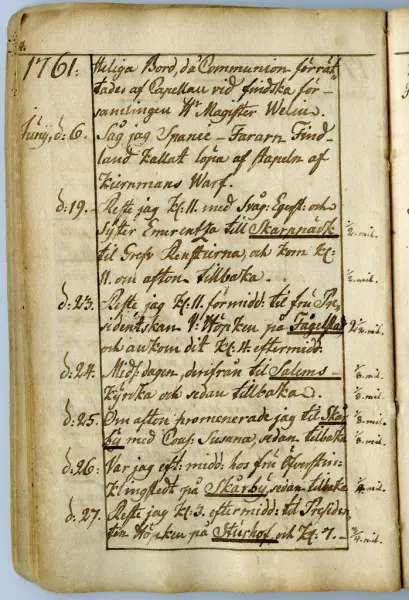 1761. Heliga Bord, då Communion förrät-
tades af Capellan vid finska för-
samlingen Hr Magister Welin.
Junij, d: 6. Såg jag Spanie-Fararn Find-
land kallat löpa af stapeln af
Kiermans Warf.
d: 19. Reste jag Kl: 11. med Svåg: och
Syster till 1/2. mil.
til Gref och kom Kl:
11. om afton tillbaka. 1/2. mil.
d: 23. Reste jag Kl: 11. förmidd: til fru Pre-
sidentskan V: Höpken på Fågelsta
och ankom dit Kl: 4. eftermidd:
d: 24. Midf: dagen, derifrån til Salems-
kyrka och sedan tillbaka.
d: 25. Om afton promenerade jag til Skår-
by med Cous: Susana, sedan tillbaka
d: 26. Var jag eft: midd: hos fru Öfverstin:
Klingstedt på Skårby, sedan tilbaka
d: 27. Reste jag Kl: 3. eftermidd: til Presiden-
ten Höpken på Sturhof och Kl: 7. - 3/4. mil.